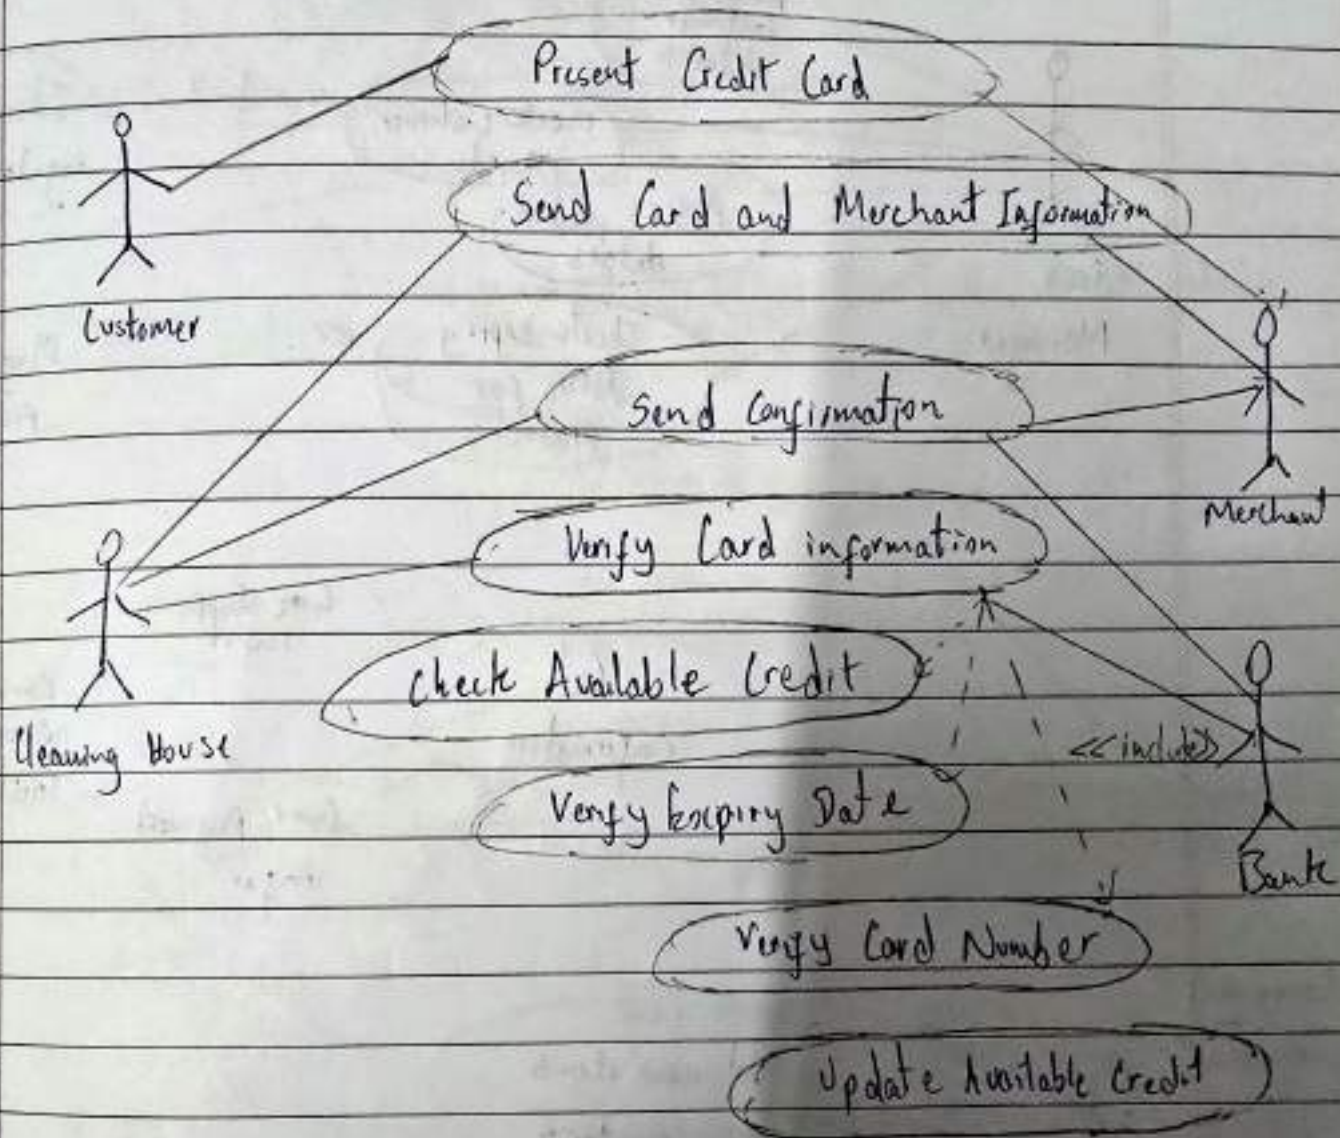 Present Credit Card
Send Card and Merchant Information
Customer
Send Confirmation
Merchant
Verify Card information
Check Available Credit
Cleaning House
<<include>>
Verify Expiry Date
Bank
Verify Card Number
Update Available Credit